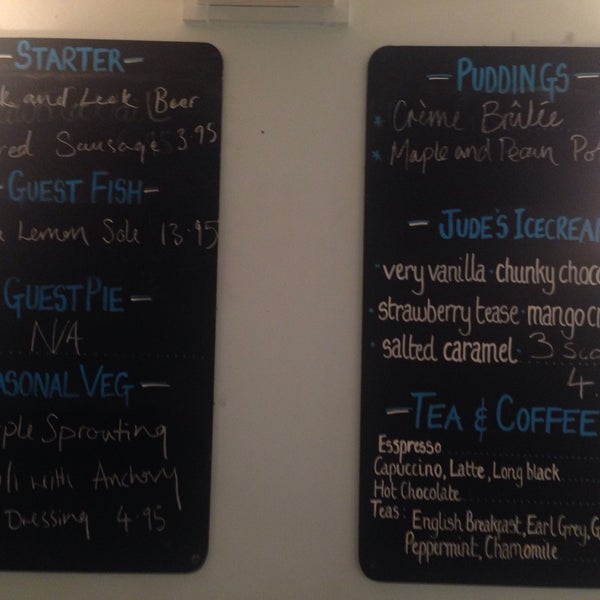 - STARTER -
and Leek Beer
Sausage 3.95
GUEST FISH -
Lemon Sole 13.95
GUEST PIE -
N/A
VEG -
Sprouting
with Anchovy
Dressing 4.95
- PUDDINGS -
* Crème Brûlée
* Maple and Pecan
- JUDE'S ICECREAM
very vanilla · chunky
strawberry tease · mango
salted caramel · 3
4.
- TEA & COFFEE
Esspresso
Capuccino, Latte, Long black
Hot Chocolate
Teas: English Breakfast, Earl Grey, G
Peppermint, Chamomile